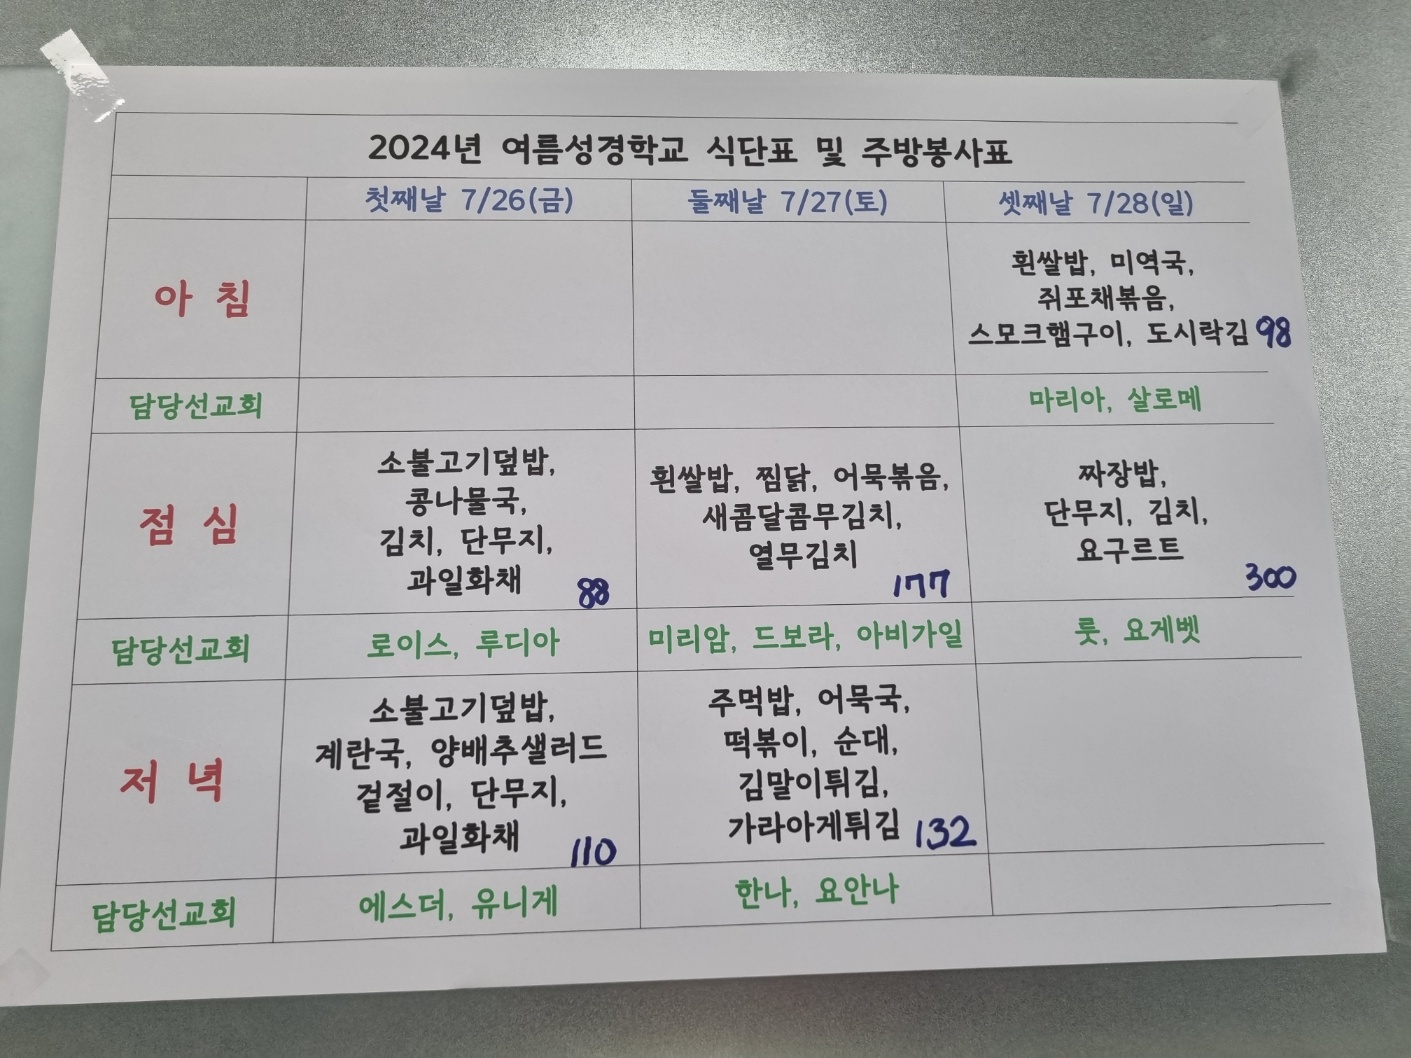 2024년 여름성경학교 식단표 및 주방봉사표
첫째날 7/26(금) 둘째날 7/27(토) 셋째날 7/28(일)
아 침
흰쌀밥, 미역국,
쥐포채볶음,
스모크햄구이, 도시락김 98
담당선교회 마리아, 살로메
점 심
소불고기덮밥,
콩나물국,
김치, 단무지,
과일화채 88
흰쌀밥, 찜닭, 어묵볶음,
새콤달콤무김치,
열무김치
177
짜장밥,
단무지, 김치,
요구르트
300
담당선교회 로이스, 루디아 미리암, 드보라, 아비가일 룻, 요게벳
저 녁
소불고기덮밥,
계란국, 양배추샐러드
겉절이, 단무지,
과일화채 110
주먹밥, 어묵국,
떡볶이, 순대,
김말이튀김,
가라아게튀김 132
담당선교회 에스더, 유니게 한나, 요안나